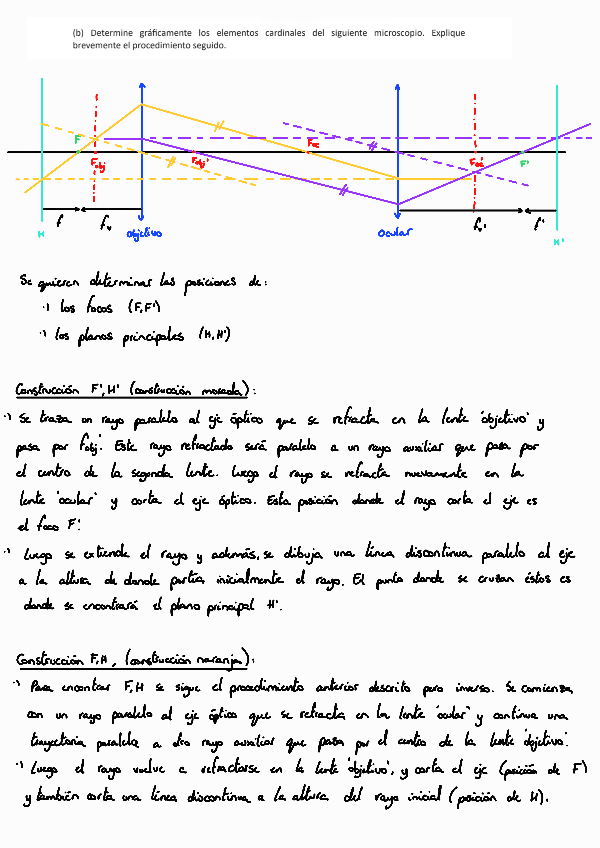 (b) Determine gráficamente los elementos cardinales del siguiente microscopio. Explique
brevemente el procedimiento seguido.
F
Fobj
Fobj'
Foc
Foc'
F'
f
fv
fv'
f'
H
Objetivo
Ocular
H'
Se quieren determinar las posiciones de:
·) los focos (F,F')
·) los planos principales (H,H')
Construcción F',H' (construcción morada):
·) Se traza un rayo paralelo al eje óptico que se refracta en la lente 'objetivo' y
pasa por fobj'. Este rayo refractado será paralelo a un rayo auxiliar que pasa por
el centro de la segunda lente. Luego el rayo se refracta nuevamente en la
lente 'ocular' y corta el eje óptico. Esta posición donde el rayo corta el eje es
el foco F'.
·) Luego se extiende el rayo y además, se dibuja una línea discontinua paralela al eje
a la altura de donde partía inicialmente el rayo. El punto donde se cruzan éstos es
donde se encontrará el plano principal H'.
Construcción F,H, (construcción naranja):
·) Para encontrar F,H se sigue el procedimiento anterior descrito pero inverso. Se comienza
con un rayo paralelo al eje óptico que se refracta en la lente 'ocular' y continua una
trayectoria paralela a otro rayo auxiliar que pasa por el centro de la lente 'objetivo'.
·) Luego el rayo vuelve a refractarse en la lente 'objetivo', y corta el eje (posición de F)
y también corta una línea discontinua a la altura del rayo inicial (posición de H).